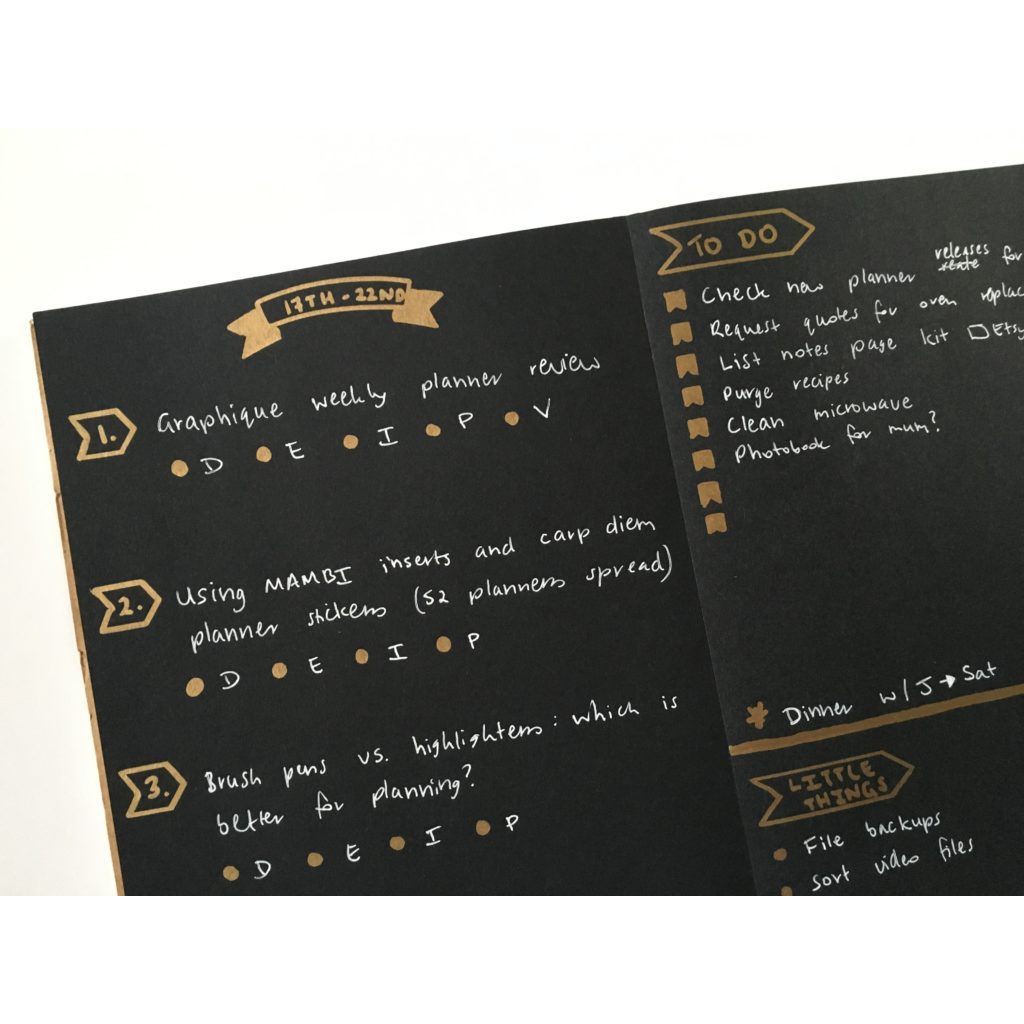 17TH - 22ND
1. Graphique weekly planner review
D E I P V
2. Using MAMBI inserts and carp diem
planner stickers (52 planners spread)
D E I P
3. Brush pens vs. highlighters: which is
better for planning?
D E I P
TO DO
Check new planner releases for
Request quotes for oven replac
List notes page kit Etsy
Purge recipes
Clean microwave
Photobook for mum?
Dinner w/ J → Sat
LITTLE
THINGS
File backups
Sort video files